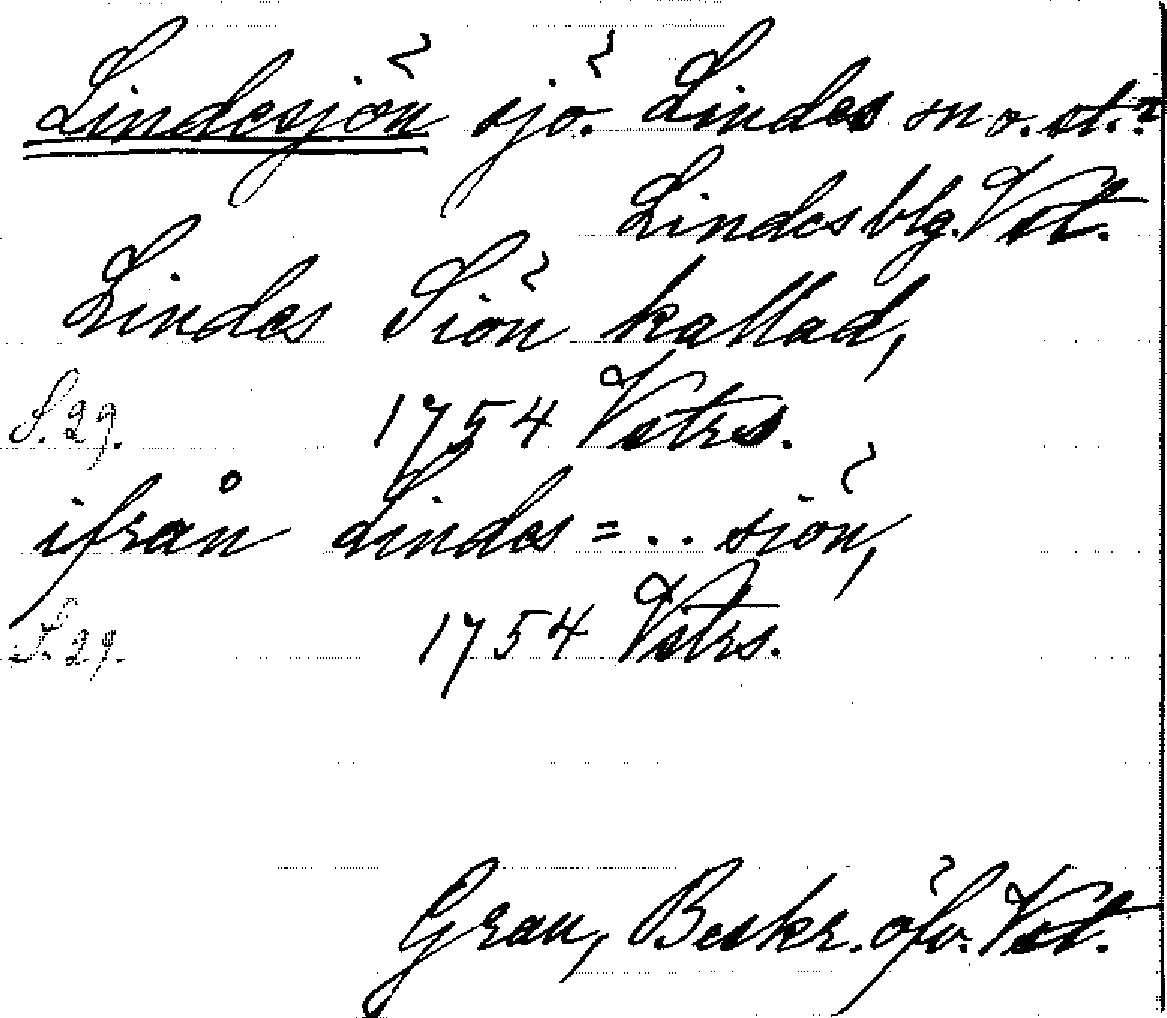 Lindesjön sjö. Lindes sn o. st.
Lindesblg. Vst.
Lindes Siön kallad,
S. 29. 1754 Vstrs.
ifrån Lindes = .. siön,
S. 29. 1754 Vstrs.
Grau, Beskr. öfv. Vst.